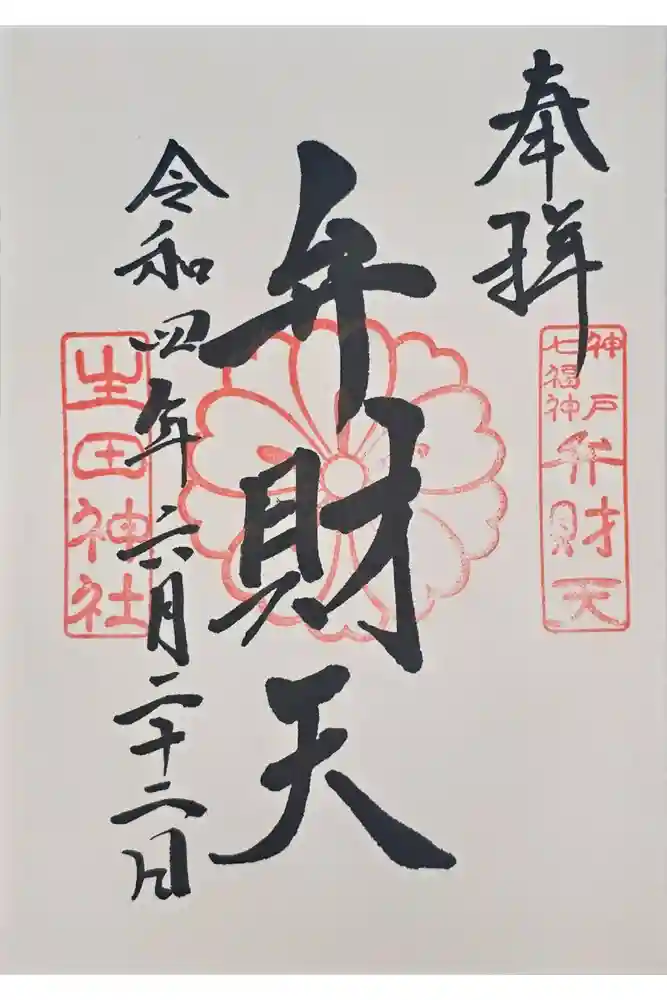 奉拝
神戸
七福神
弁財天
弁財天
令和四年六月二十二日
生田神社